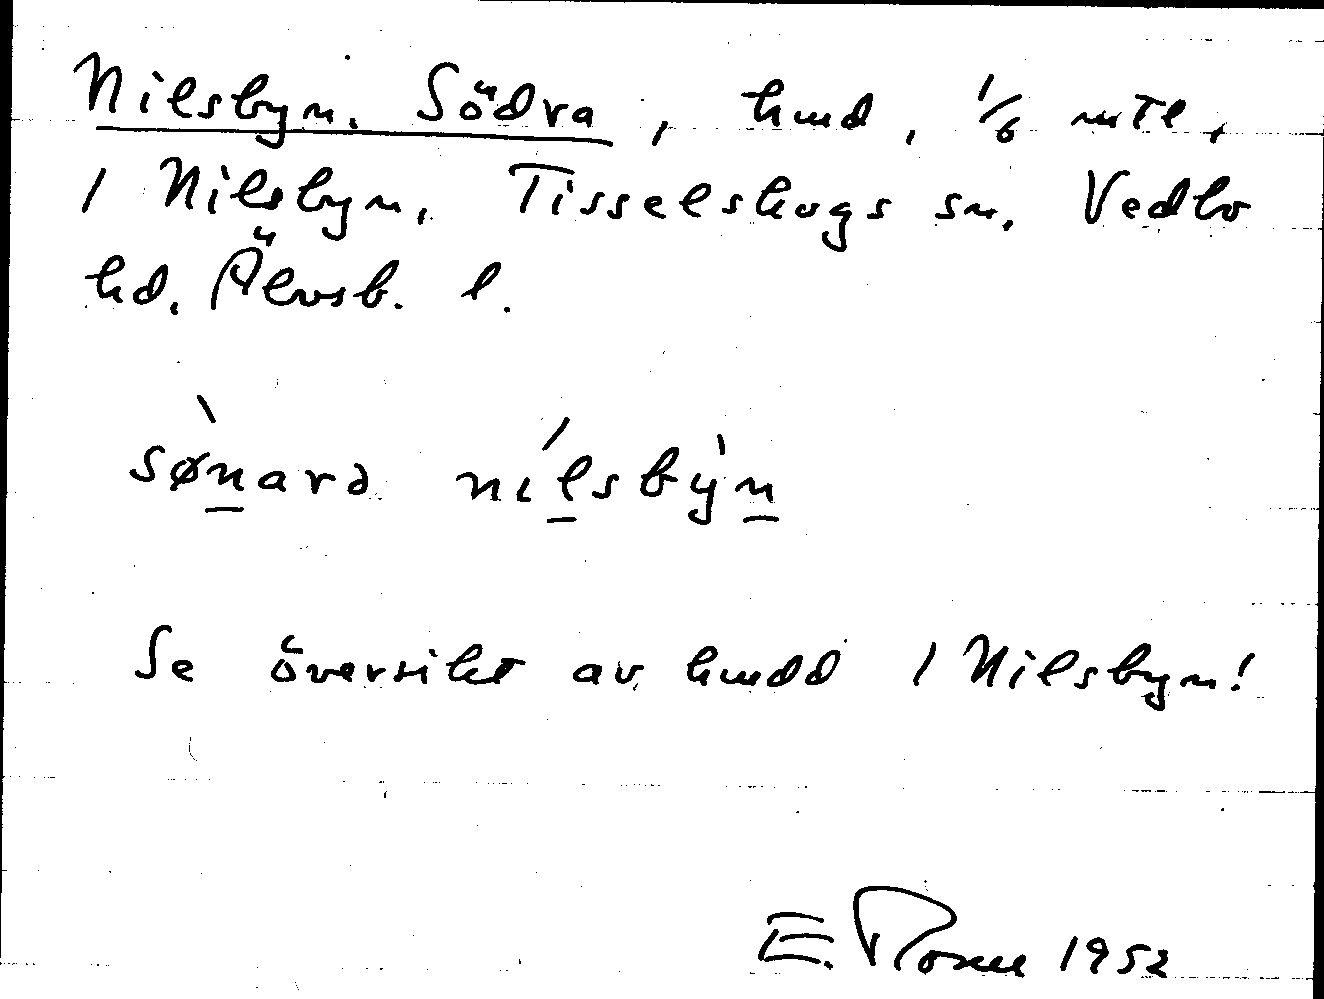 Nilsbyn, Södra, hmd, 1/6 mtl,
1 Nilsbyn, Tisselskogs sn. Vedbo
hd. Älvsb. l.
sø̀narə nílsbỳn
Se översikt av hmdd 1 Nilsbyn!
E. 1952